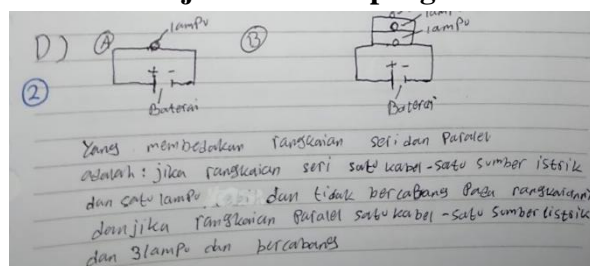 D) A lampu B lampu
2
Baterai Baterai
Yang membedakan rangkaian seri dan Paralel
adalah : jika rangkaian seri satu kabel-satu sumber istrik
dan satu lampu dan tidak bercabang Pada
dan jika rangkaian Paralel satu kabel-satu sumber listrik
dan 3 lampu dan bercabang